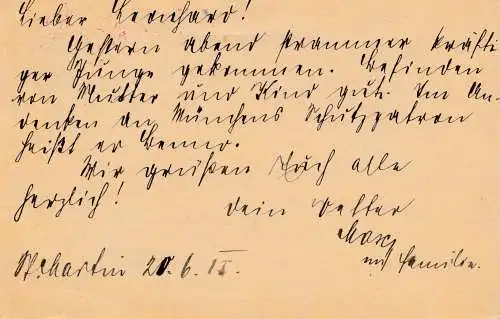 Lieber Bernhard!
Gestern abend strammer kräfti
ger Junge gekommen. Befinden
von Mutter und Kind gut. Im An-
denken an Münchens Schutzpatron
heißt er Benno.
Wir grüßen Euch alle
herzlich!
Dein Vetter
Max
und Familie.
St. Martin 20. 6. 15.